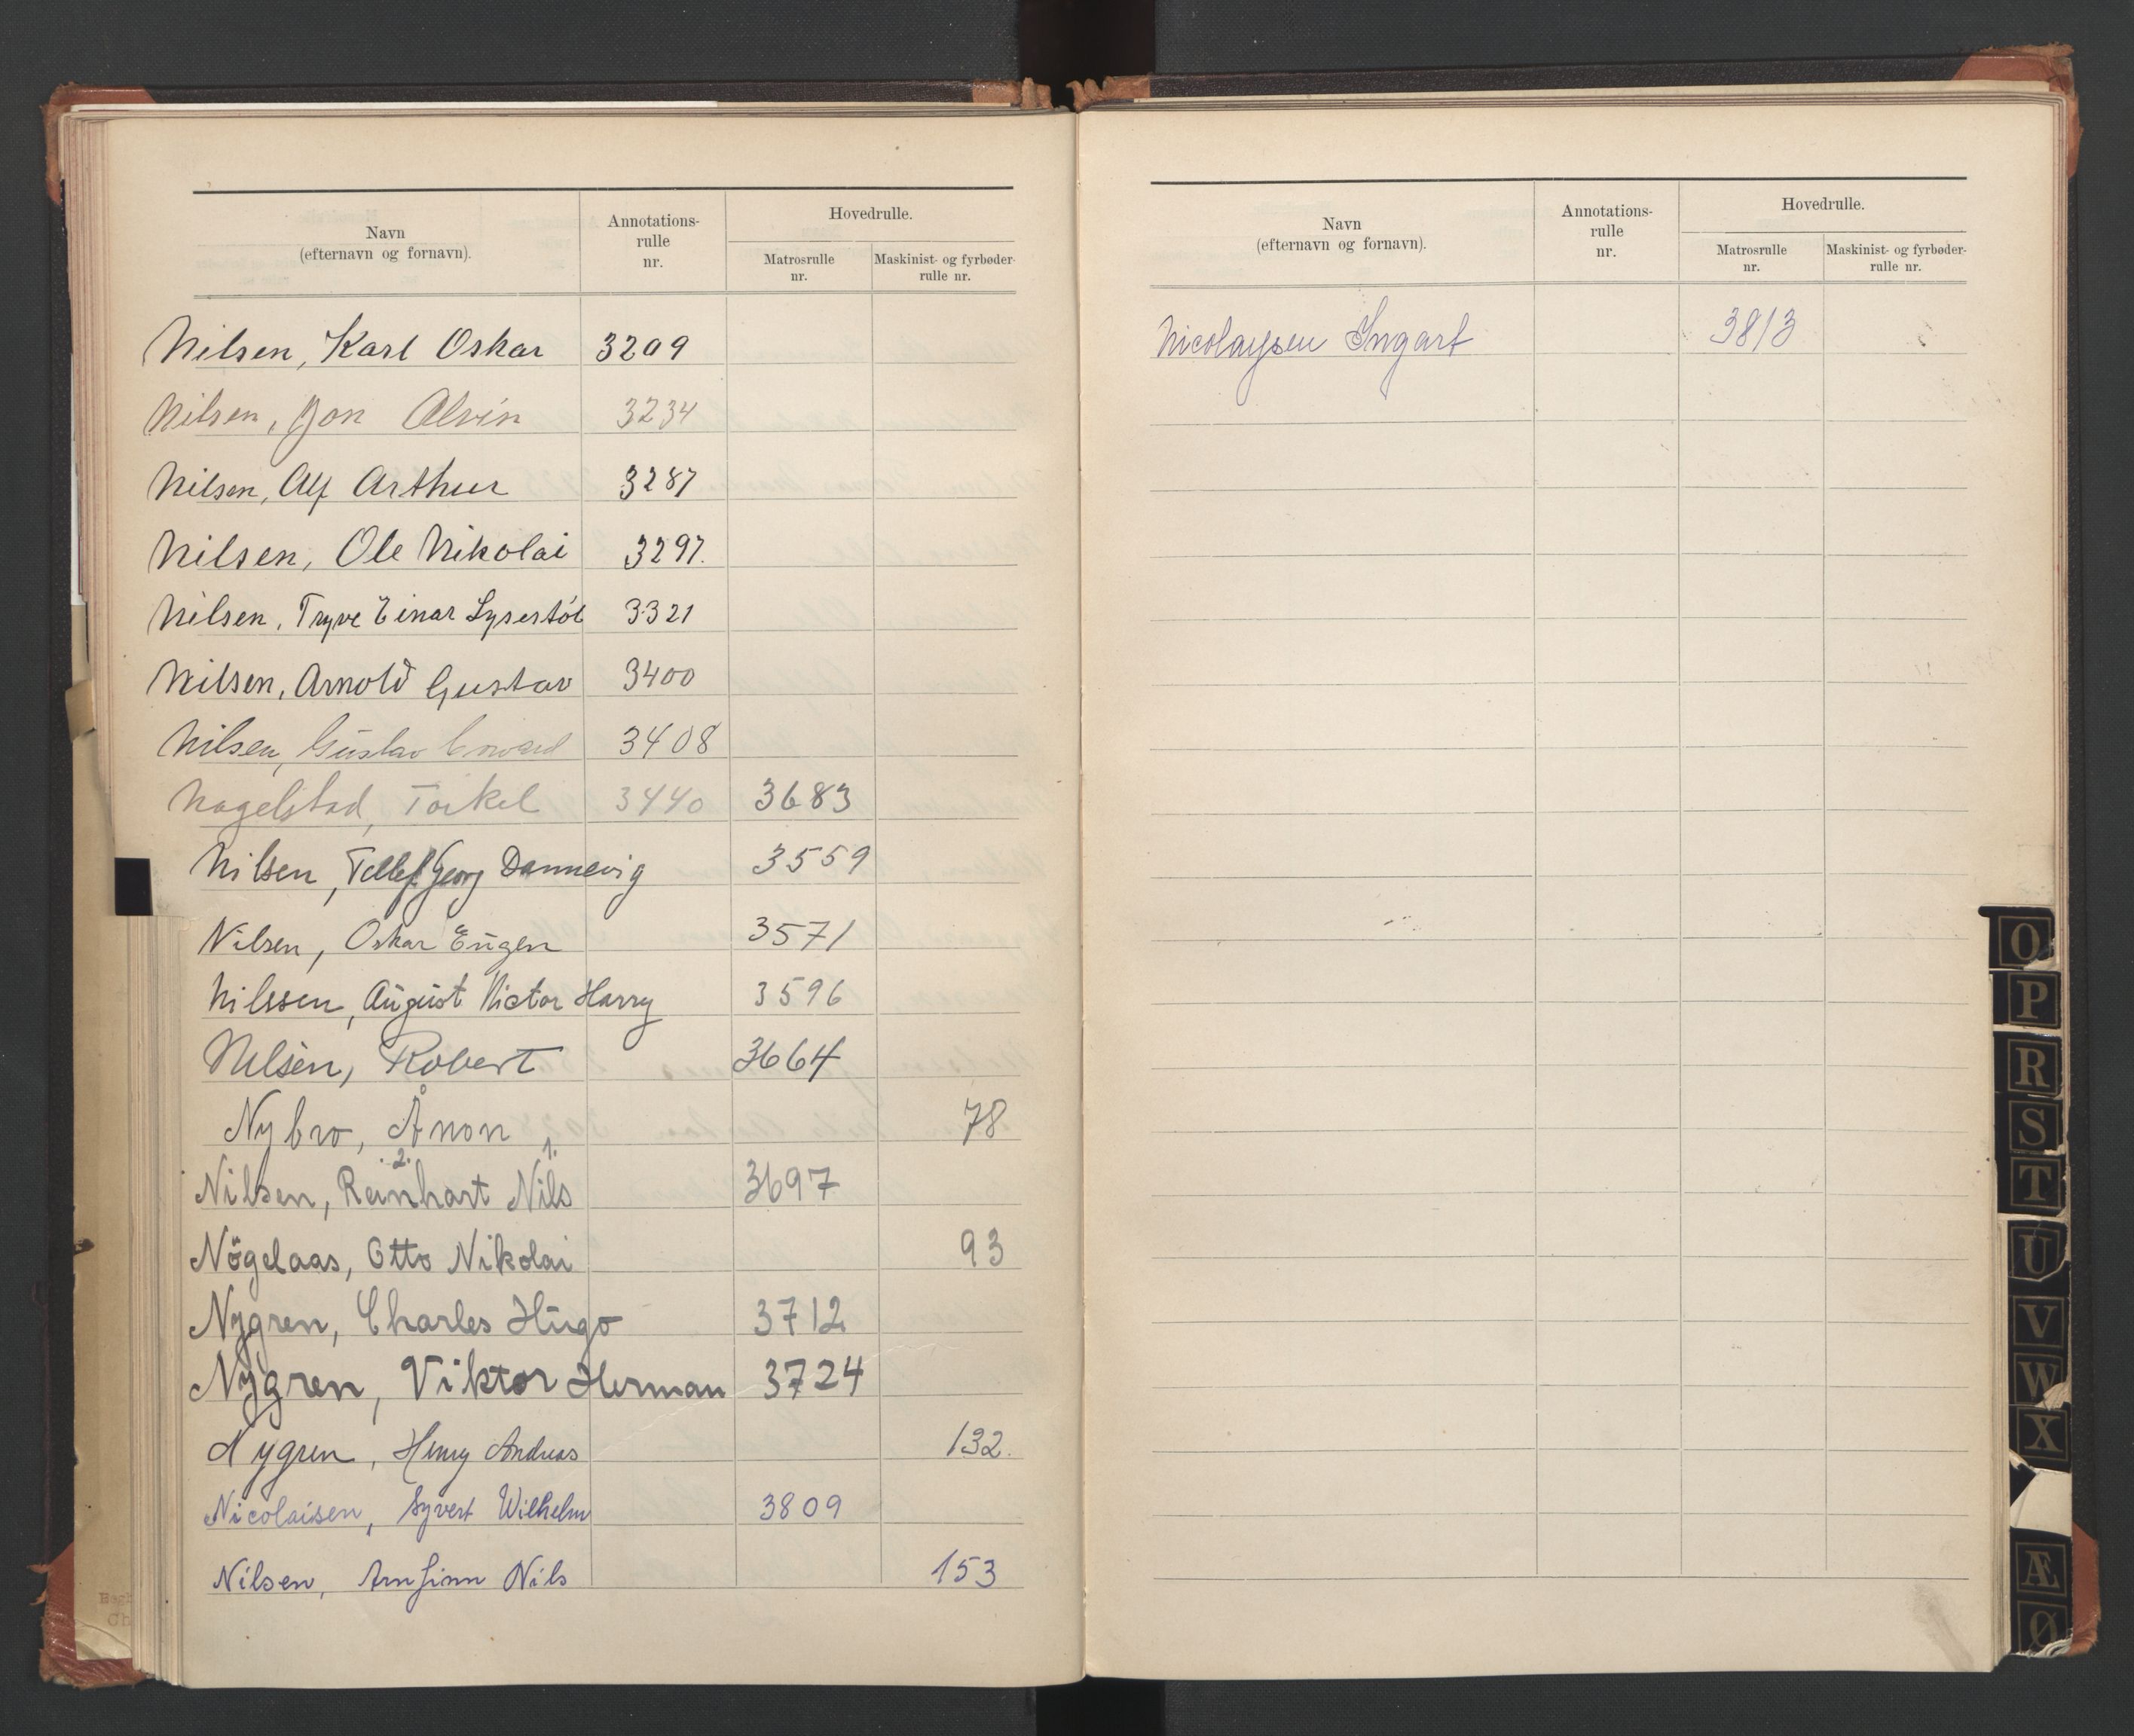 Navn
(efternavn og fornavn).
Annotations-
rulle
nr.
Hovedrulle.
Matrosrulle
nr.
Maskinist- og fyrbøder-
rulle nr.
Nilsen, Karl Oskar 3209
Nilsen, Jon Alvin 3234
Nilsen, Alf Arthur 3287
Nilsen, Ole Nikolai 3297.
Nilsen, Tryve Einar Lysestöl 3321
Nilsen, Arnold Gustav 3400
Nilsen, Gustav 3408
Nagelstad, Torkel 3440 3683
Nilsen, Tellef Georg Dannevig 3559
Nilsen, Oskar Eugen 3571
Nilssen, August Victor Harry 3596
Nilsen, Robert 3664
Nybro, Ånon 78
2. 1.
Nilsen, Reinhart Nils 3697
Nögelaas, Otto Nikolai 93
Nygren, Charles Hugo 3712
Nygren, Viktor Herman 3724
Nygren, Henry Andreas 132.
Nicolaisen, Syvert Wilhelm 3809
Nilsen, Arnfinn Nils 153
Navn
(efternavn og fornavn).
Annotations-
rulle
nr.
Hovedrulle.
Matrosrulle
nr.
Maskinist- og fyrbøder-
rulle nr.
Nicolaysen Ingart 3813
O
P
R
S
T
U
V
W
X
Æ
Ø